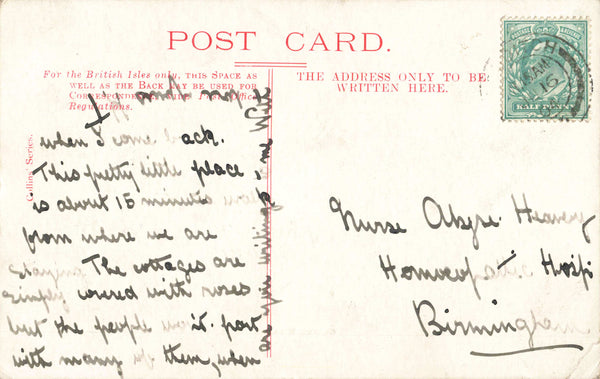 POST CARD.
For the British Isles only, THIS SPACE AS
WELL AS THE BACK MAY BE USED FOR
Regulations.
THE ADDRESS ONLY TO BE
WRITTEN HERE.
POSTAGE
HALFPENNY
Collins' Series.
when I come back.
This pretty little place
is about 15 minutes
from where we are
staying The cottages are
simply covered with roses
but the people won't part
with many of them, when
are you writing to me With
Nurse Heavey
Homoeopathic Hospi
Birmingham